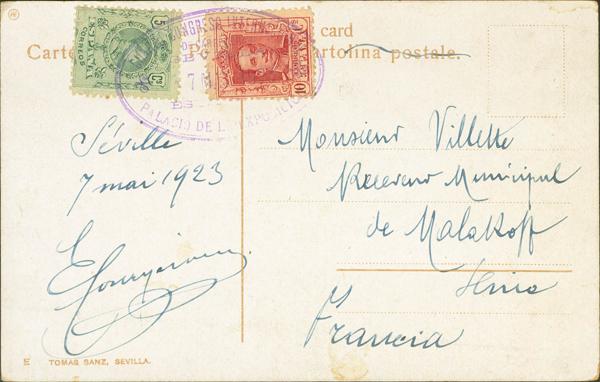 card
Carte
Po
Cartolina postale.
5
CORREOS
ESPAÑA
5 Cs
10
CONGRESO
7 M
PALACIO DE LA EXPOSICIO
Séville
7 mai 1923
Monsieur Villette
Receveur Municipal
de Malakoff
Seine
Francia
E TOMÁS SANZ, SEVILLA.